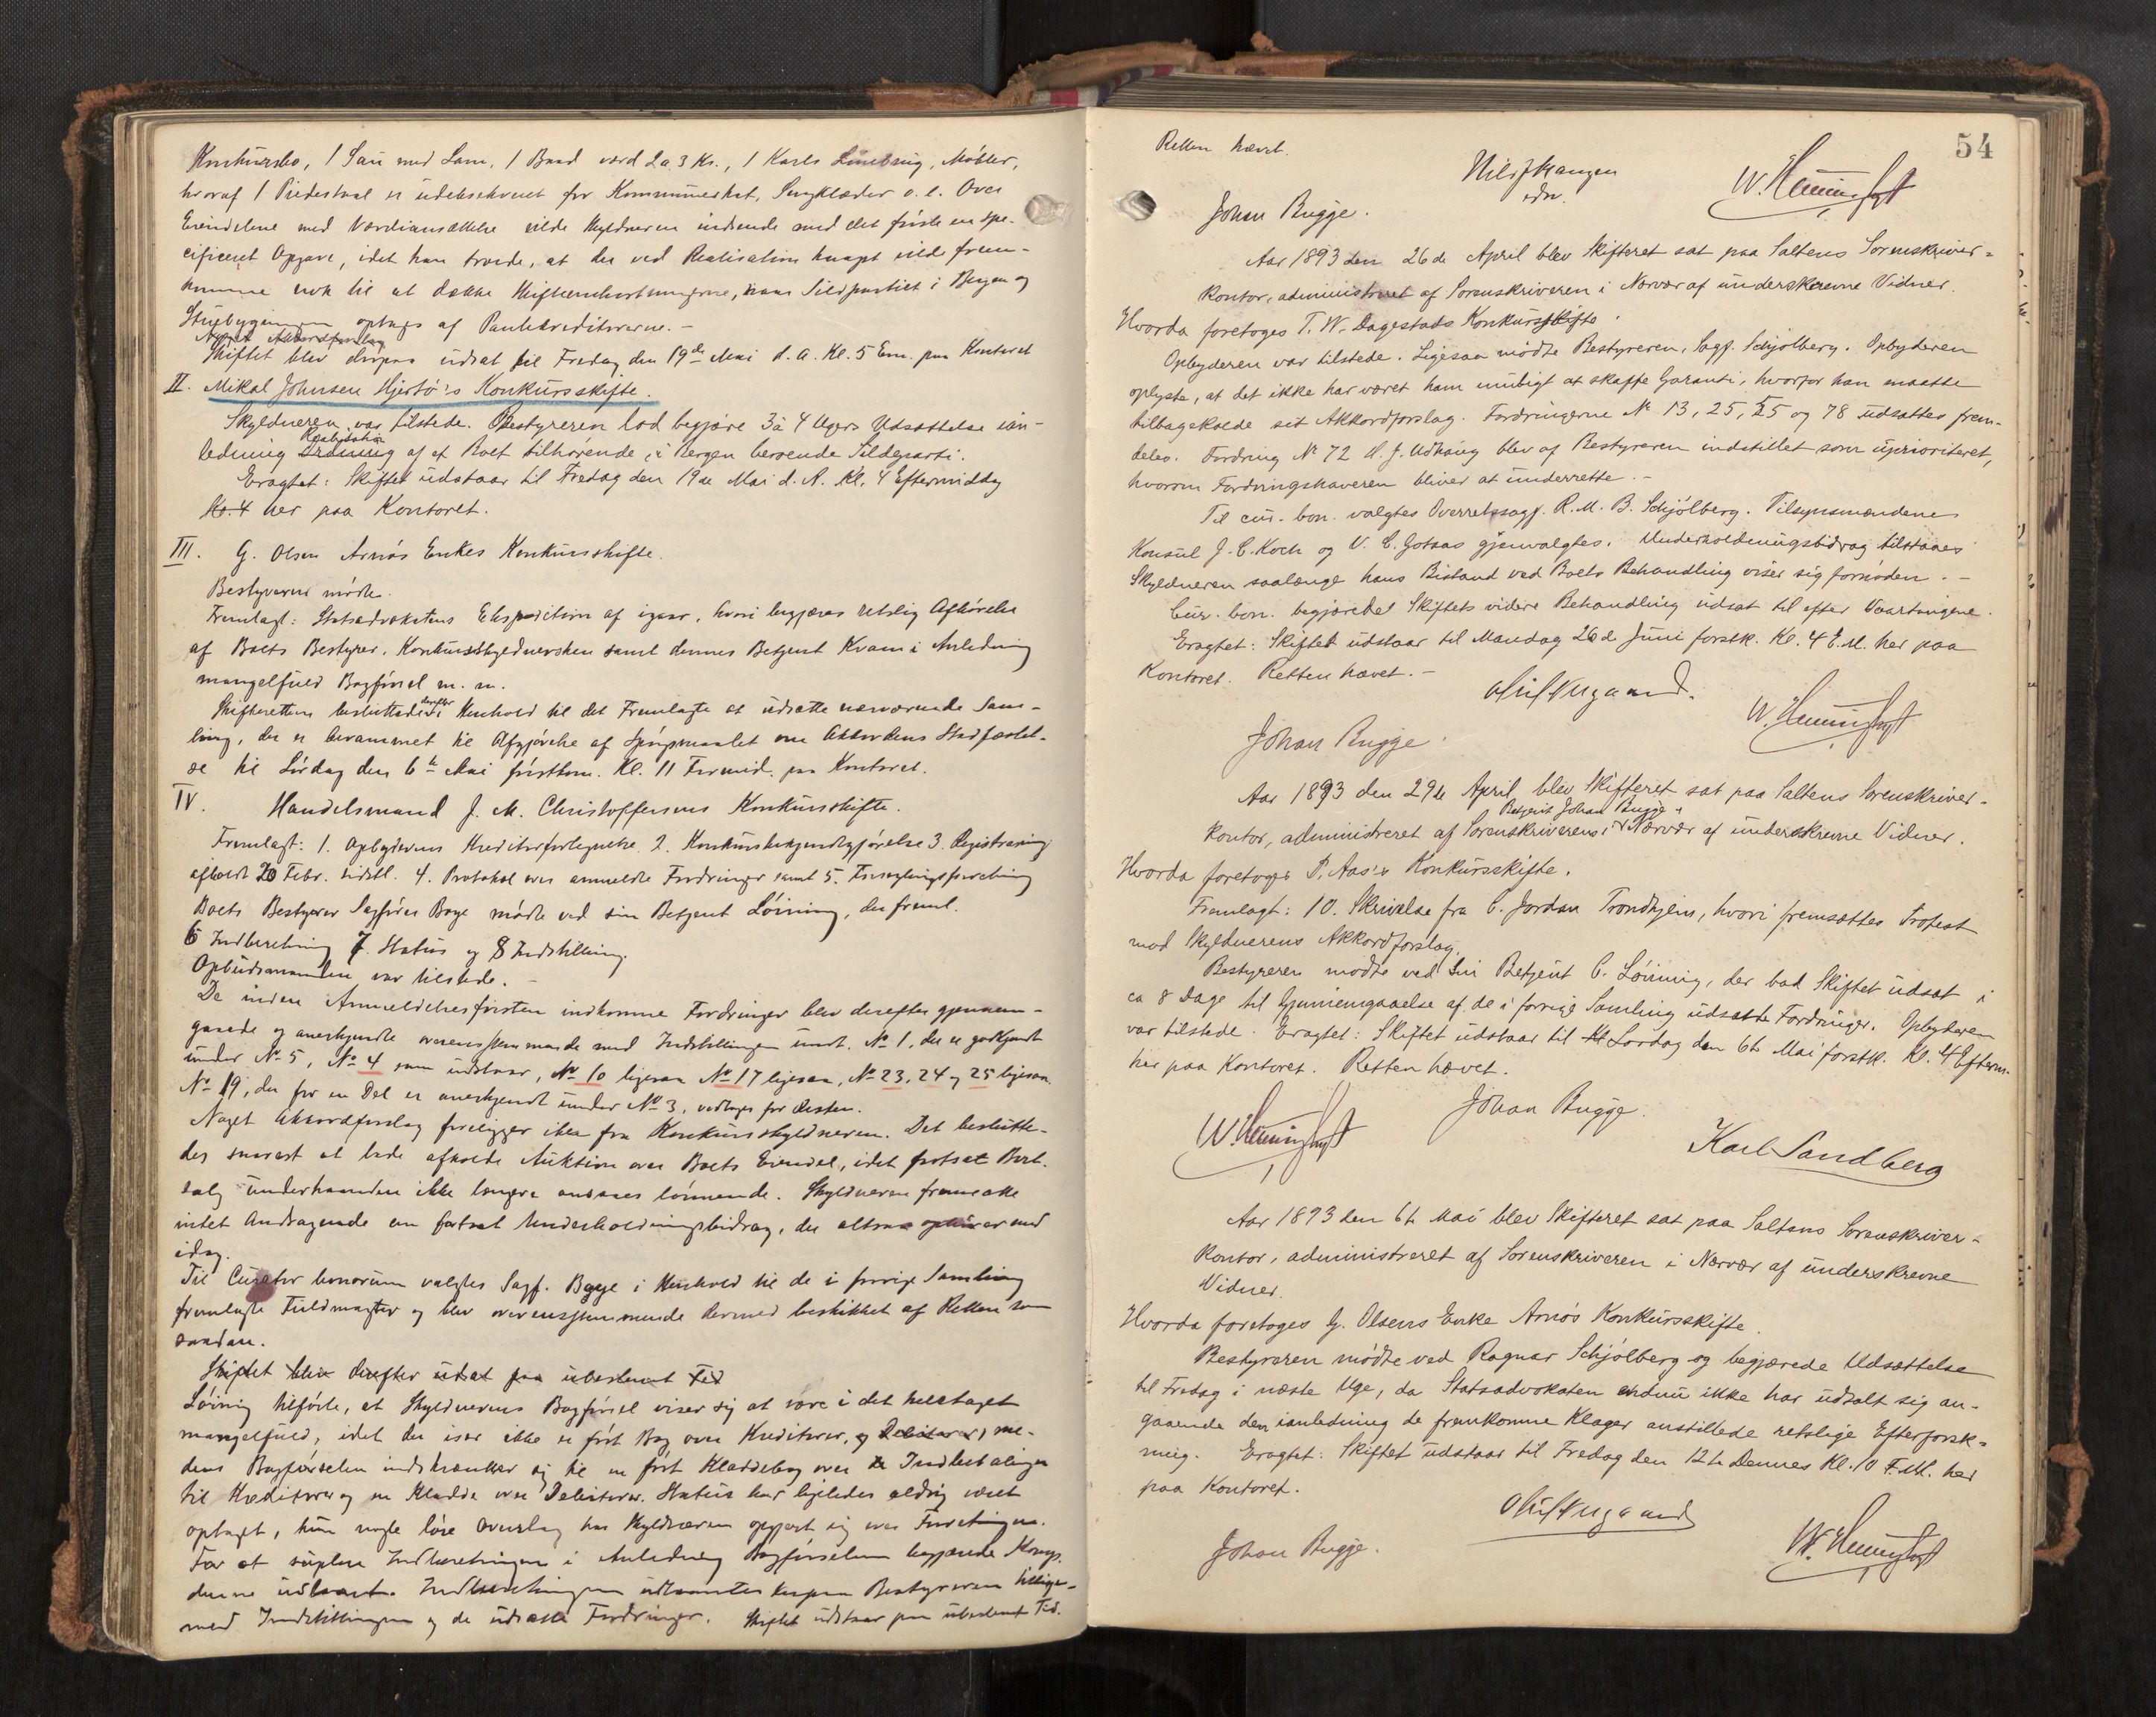 Konkursbo, 1 Sau med Lam, 1 Baad værd 2 a 3 Kr., 1 Karls Linebrug, Møbler,
hvoraf 1 Piedestal er udlaant for Kommuneskat, Sengklæder o. l. Over
Eiendelene med Værdiansættelse vilde Skyldneren indsende med det første en spe-
cificeret Opgave, idet han troede, at der ved Realisation knapt vilde frem-
komme nok til at dække Skifteomkostningerne, naar Sildepartiet i Bergen og
Stuebygningen optages af Pantekreditorerne. -
Noget Akkordforslag
Skiftet blev derpaa udsat til Fredag den 19de Mai d. A. Kl. 5 Em. paa Kontoret
II. Mikal Johnsen Hjertø's Konkursskifte.
Skyldneren var tilstede. Bestyreren lod begjære 3 à 4 Ugers Udsættelse ian-
Realisation
ledning af et Boet tilhørende, i Bergen beroende Sildeparti.
Eragtet: Skiftet udstaar til Fredag den 19de Mai d. A. Kl. 4 Eftermiddag
Kl. 4 her paa Kontoret.
III. G. Olsen Arnøs Enkes Konkursskifte.
Bestyreren mødte.
Fremlagt: Statsadvokatens Ekspedition af igaar, hvori begjæres retslig Afhørelse
af Boets Bestyrer, Konkursskyldnersken samt dennes Betjent Kvam i Anledning
mangelfuld Bogførsel m. m.
Skifteretten besluttede derefter i Henhold til det Fremlagte at udsætte nærværende Sam-
ling, der er berammet til Afgjørelse af Spørgsmaalet om Akkordens Stadfæstel-
se til Lørdag den 6te Mai førstkom. Kl. 11 Formid. paa Kontoret.
IV. Handelsmand J. M. Christoffersens Konkursskifte.
Fremlagt: 1. Opbyderens Kreditorfortegnelse 2. Konkursbekjendtgjørelse 3. Registrering
afholdt 20 Febr. sidstl. 4. Protokol over anmeldte Fordringer samt 5. Forseglingsforretning
Boets Bestyrer Sagfører Bøge mødte ved sin Betjent Lønning, der freml.
6 Indberetning 7. Status og 8 Indstilling.
Opbudsmanden var tilstede. -
De inden Anmeldelsesfristen indkomne Fordringer blev derefter gjennem-
gaaede og anerkjendte overensstemmende med Indstillingen undt. No 1, der er godkjendt
under No 5, No 4 som udstaar, No 10 ligesaa No 17 ligesaa, No 23, 24 og 25 ligesaa.
No 19, der for en Del er anerkjendt under No 3, vedtages for Resten.
Noget Akkordforslag foreligger ikke fra Konkursskyldneren. Det beslutte-
des snarest at lade afholde Auktion over Boets Eiendel, idet fortsat Bort-
salg underhaanden ikke længere ansees lønnende. Skyldneren fremsatte
intet Andragende om fortsat Underholdningsbidrag, der altsaa ophører med
idag.
Til Curator bonorum valgtes Sagf. Bøge i Henhold til de i forrige Samling
fremlagte Fuldmagter og blev overensstemmende dermed beskikket af Retten som
saadan.
Skiftet blev derefter udsat paa ubestemt Tid
Lønning tilførte, at Skyldnerens Bogførsel viser sig at være i det heletaget
mangelfuld, idet der især ikke er ført Bog over Kreditorer, og Debitorer, me-
dens Bogførselen indskrænker sig til en ført Kladdebog over Indbetalinger
til Kreditorer og en Kladde over Debitorer. Status har ligeledes aldrig været
optaget, kun nogle løse Overslag har Skyldneren opgjort sig over Forretningen.
For at suplere Indberetningen i Anledning Bogførselen begjærede Komp.
denne udlaant. Indberetningen udlaantes derpaa Bestyreren tillige-
med Indstillingen og de udsatte Fordringer. Skiftet udstaar paa ubestemt Tid.
54
Retten hævet.
W. Henningsgt
Johan Bugge.
Aar 1893 den 26de April blev Skifteret sat paa Saltens Sorenskriver-
kontor, administreret af Sorenskriveren i Nærvær af underskrevne Vidner.
Hvorda foretoges T. W. Dagestads Konkursskifte.
Opbyderen var tilstede. Ligesaa mødte Bestyreren, Sagf. Schjølberg. Opbyderen
oplyste, at det ikke har været ham muligt at skaffe Garanti, hvorfor han maatte
tilbagekalde sit Akkordforslag. Fordringerne No 13, 25, 25 og 78 udsættes frem-
deles. Fordring No 72 A. J. Udhaug blev af Bestyreren indstillet som uprioriteret,
hvorom Fordringshaveren bliver at underrette. -
Til cur. bon. valgtes Overretssagf. R. M. B. Schjølberg. Tilsynsmændene
Konsul J. C. Koch og V. C. Gotaas gjenvalgtes. Underholdningsbidrag tilstaaes
Skyldneren saalænge hans Bistand ved Boets Behandling viser sig fornøden. -
Cur. bon. begjærede Skiftets videre Behandling udsat til efter Vaartingene.
Eragtet: Skiftet udstaar til Mandag 26de Juni førstk. Kl. 4 E.M. her paa
Kontoret. Retten hævet. -
W. Henningsgt
Johan Bugge.
Aar 1893 den 29de April blev Skifteret sat paa Saltens Sorenskriver-
Betjent Johan Bugge
kontor, administreret af Sorenskriverens i Nærvær af underskrevne Vidner.
Hvorda foretoges P. Aas's Konkursskifte.
Fremlagt: 10. Skrivelse fra C. Jordan Trondhjem, hvori fremsættes Protest
mod Skyldnerens Akkordforslag.
Bestyreren mødte ved sin Betjent C. Lønning, der bad Skiftet udsat i
ca 8 Dage til Gjennemgaaelse af de i forrige Samling udsatte Fordringer. Opbyderen
var tilstede. Eragtet: Skiftet udstaar til Kl Lørdag den 6te Mai førstk. Kl. 4 Efterm.
her paa Kontoret. Retten hævet.
W. Henningsgt
Johan Bugge.
Karl Sandberg
Aar 1893 den 6te Mai blev Skifteret sat paa Saltens Sorenskriver-
kontor, administreret af Sorenskriveren i Nærvær af underskrevne
Vidner.
Hvorda foretoges G. Olsens Enke Arnøs Konkursskifte.
Bestyreren mødte ved Ragnar Schjølberg og begjærede Udsættelse
til Fredag i næste Uge, da Statsadvokaten endnu ikke har udtalt sig an-
gaaende den ianledning de fremkomne Klager anstillede retslige Efterforsk-
ning. Eragtet: Skiftet udstaar til Fredag den 12te Dennes Kl. 10 F.M. her
paa Kontoret.
Johan Bugge.
W. Henningsgt